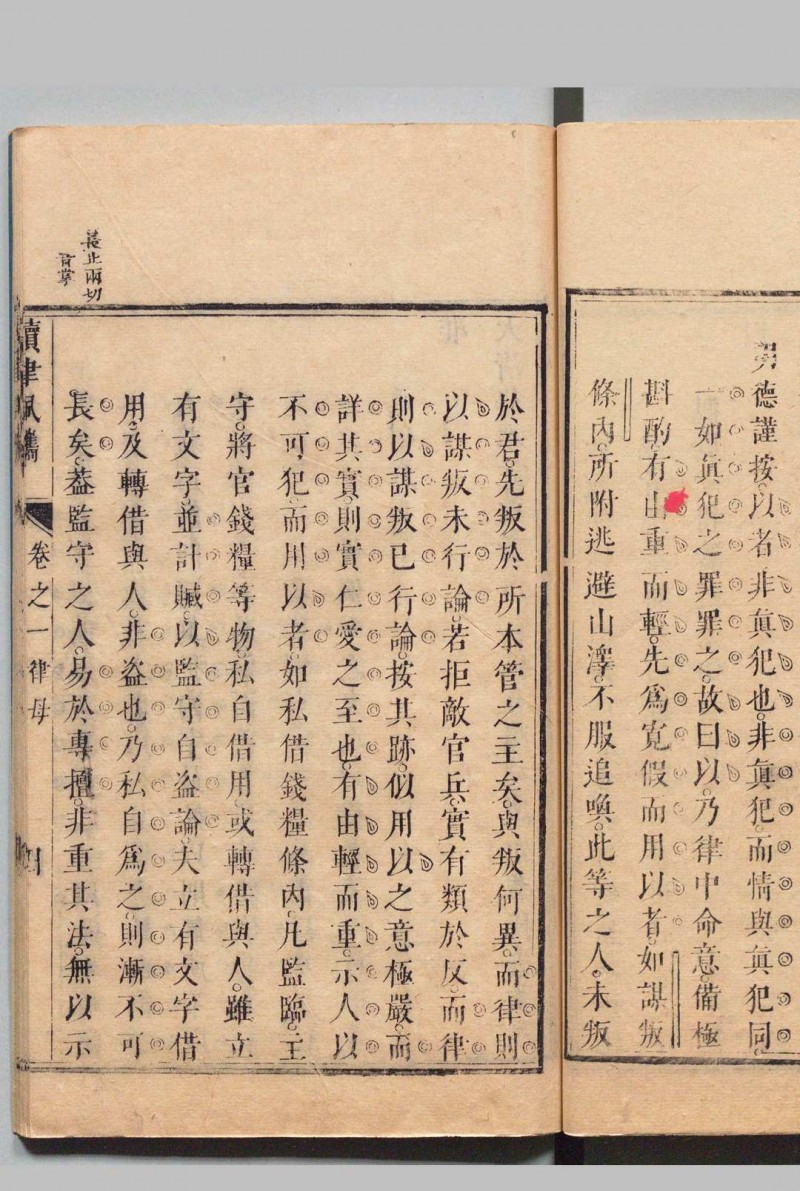 勇德謹按以者非眞犯也非眞犯而情與眞犯同
一如眞犯之罪罪之故曰以乃律中命意備極
斟酌有由重而輕先爲寬假而用以者如謀叛
條內所附逃避山澤不服追喚此等之人未叛
於君先叛於所本管之主矣與叛何異而律則
以謀叛未行論若拒敵官兵實有類於反而律
則以謀叛已行論按其跡似用以之意極嚴而
詳其實則實仁愛之至也有由輕而重示人以
不可犯而用以者如私借錢糧條內凡監臨主
守將官錢糧等物私自借用或轉借與人雖立
有文字並計贓以監守自盜論夫立有文字借
用及轉借與人非盜也乃私自爲之則漸不可
長矣葢監守之人易於專擅非重其法無以示
長止兩切
音掌
讀律佩觿
卷之一 律母
四